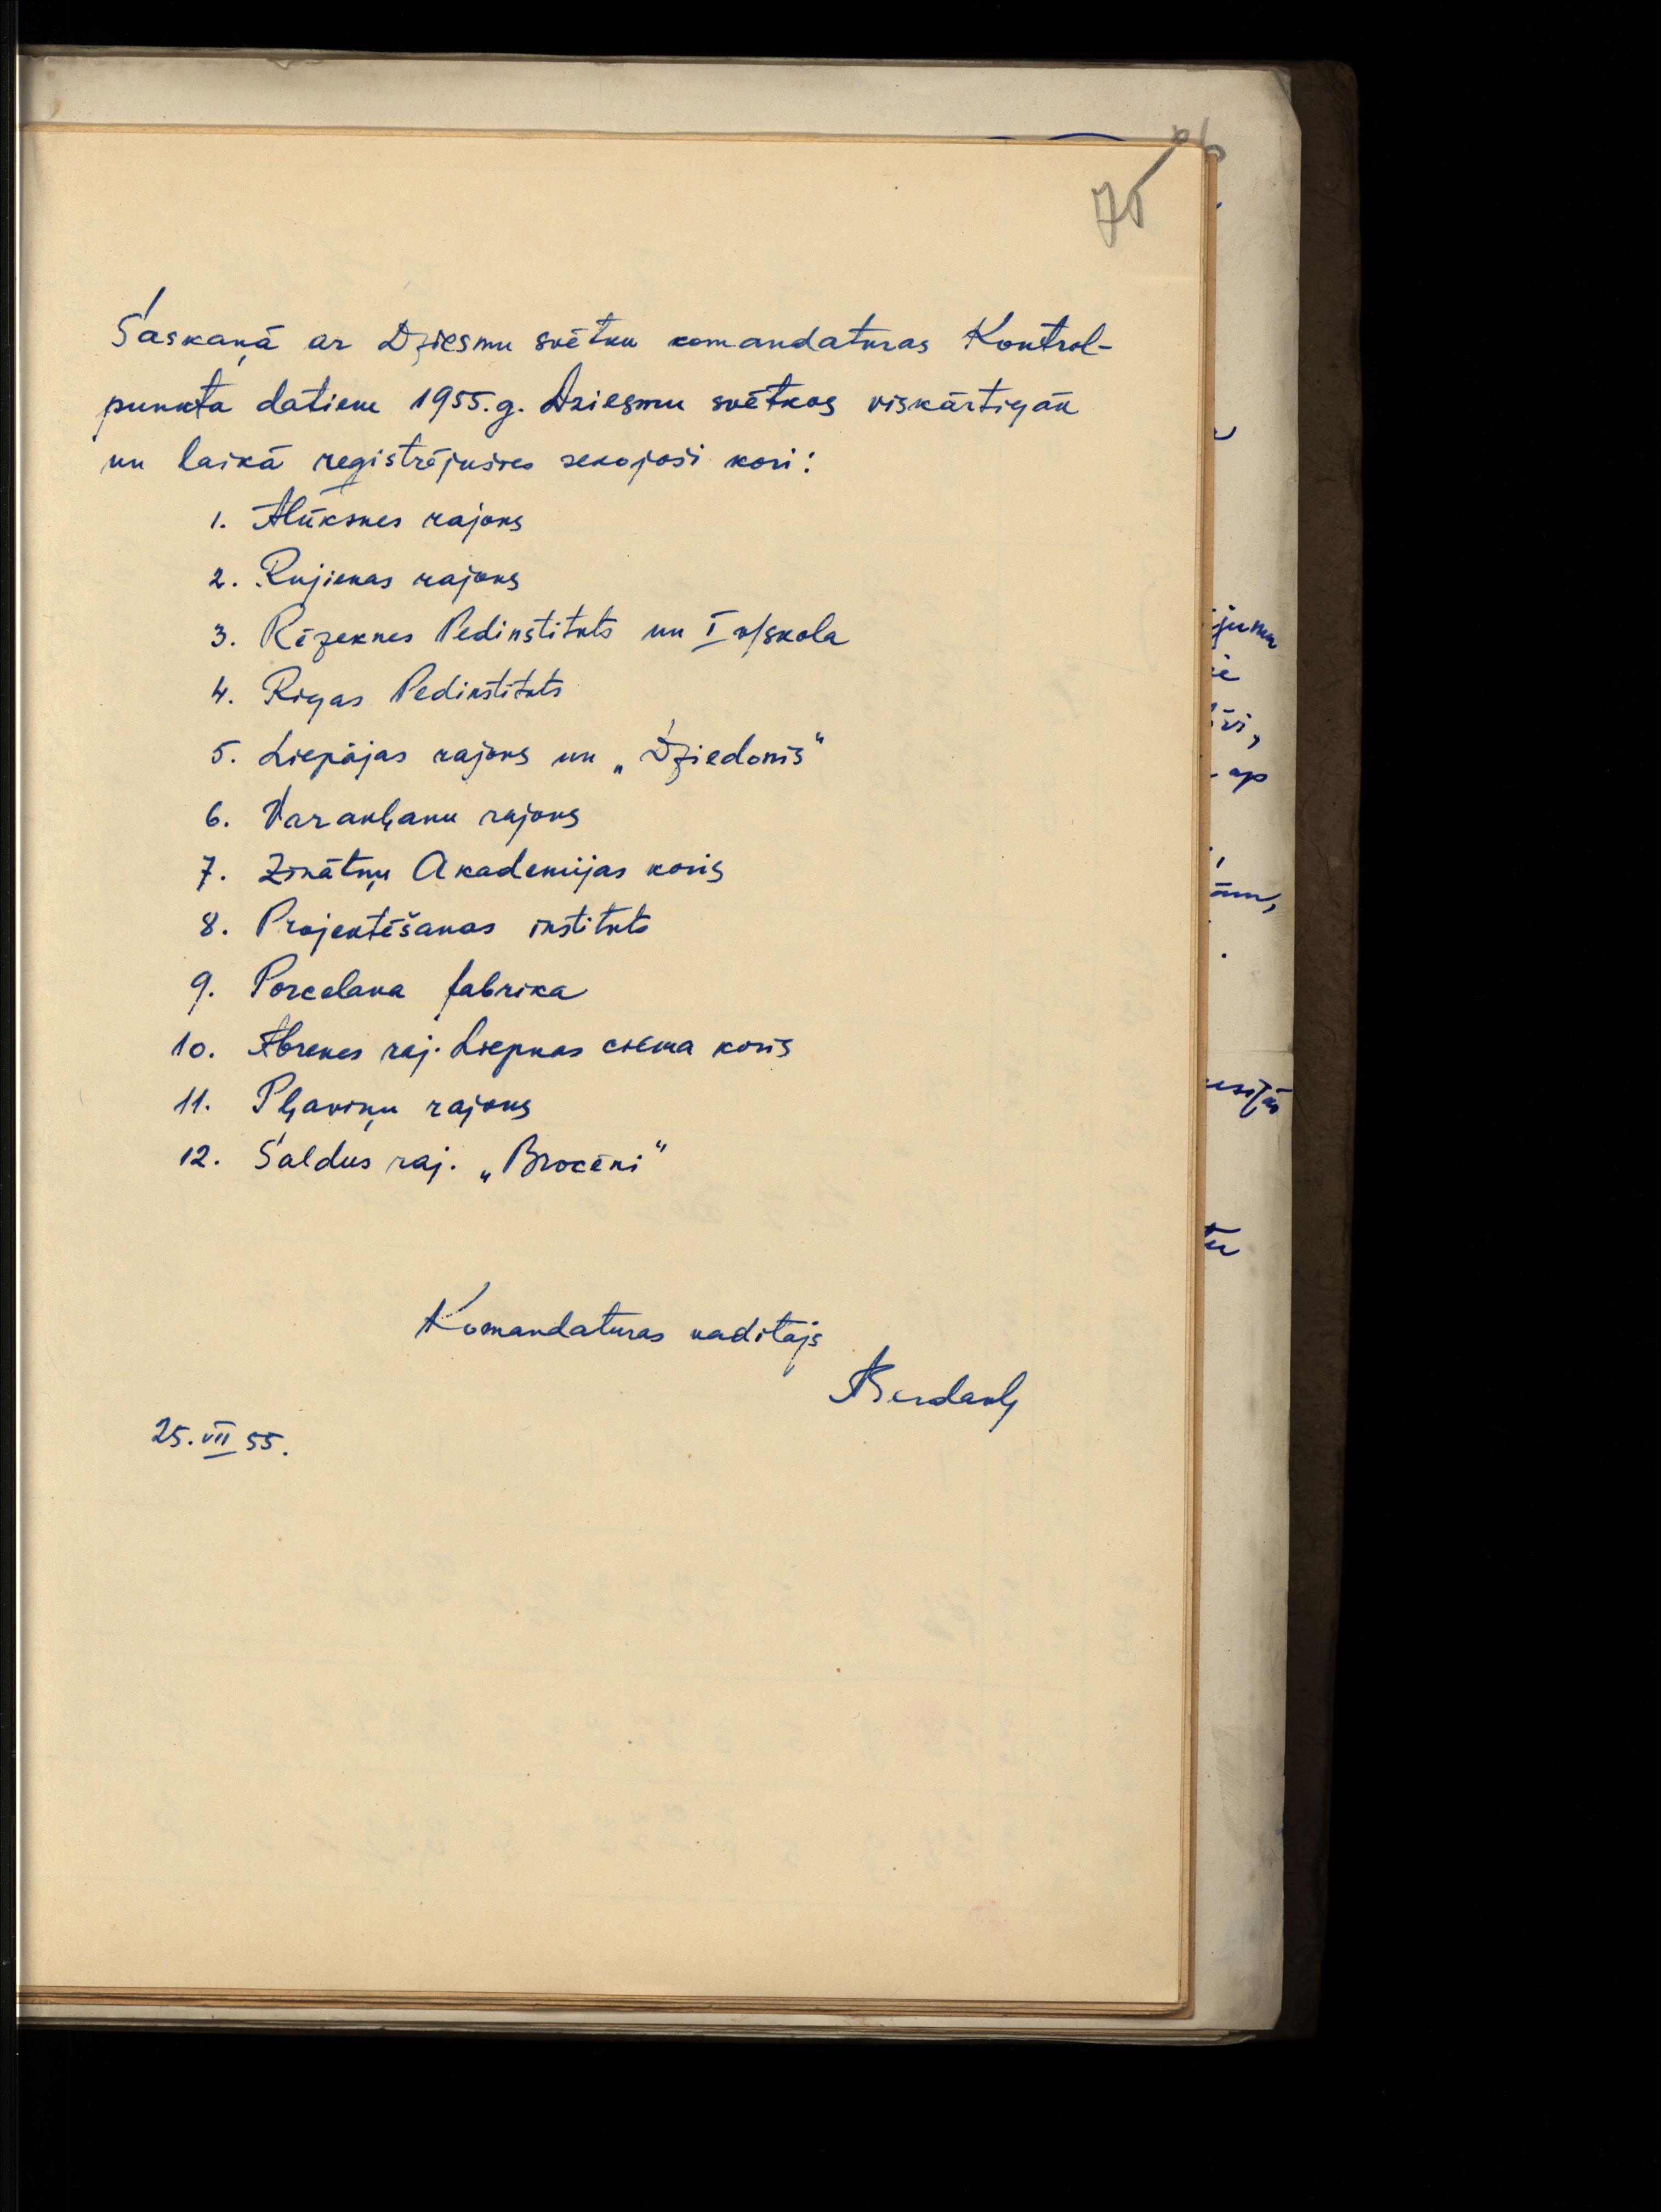 75
Saskaņā ar Dziesmu svētku komandaturas Kontrol-
punkta datiem 1955. g. Dziesmu svētkos viskārtigāk
un laikā registrējušies sekojoši kori:
1. Alūksnes rajons
2. Rujienas rajons
3. Rēzeknes Pedinstituts un I v/skola
4. Rigas Pedinstituts
5. Liepājas rajons un „Dziedonis"
6. Varakļanu rajons
7. Zinātņu Akademijas koris
8. Projektēšanas instituts
9. Porcelana fabrika
10. Abrenes raj. Liepnas ciema koris
11. Pļaviņu rajons
12. Saldus raj. „Brocēni"
Komandaturas vadītājs
25. VII 55.